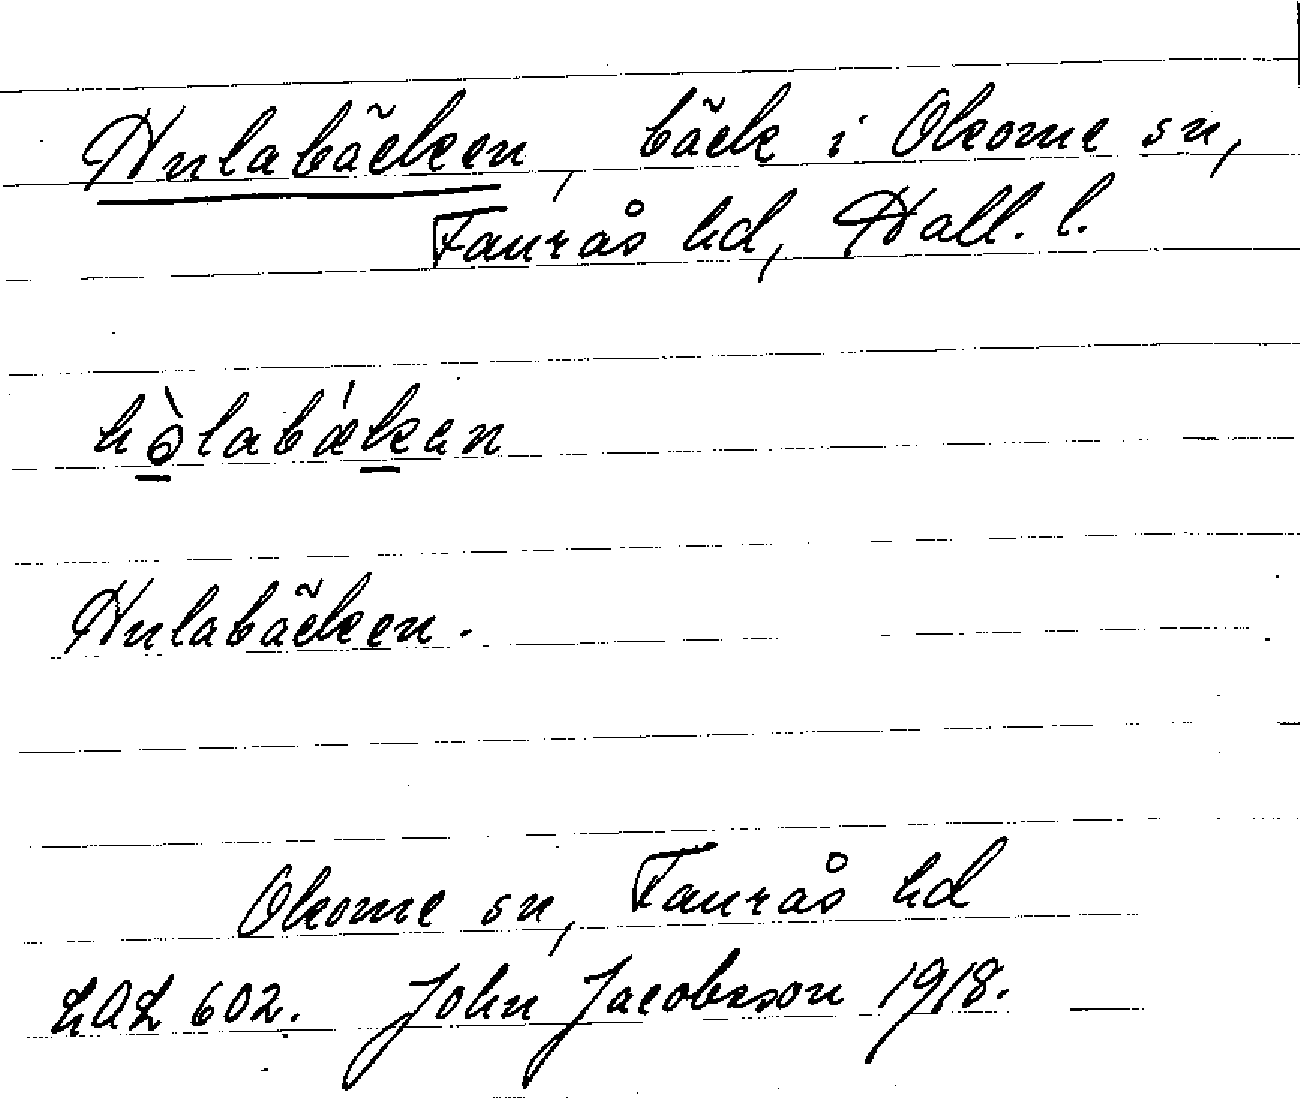 Hulabäcken, bäck i Okome sn,
Faurås hd, Hall. l.
hòlabǽkan
Hulabäcken.
Okome sn, Faurås hd
LAL 602. John Jacobsson 1918.